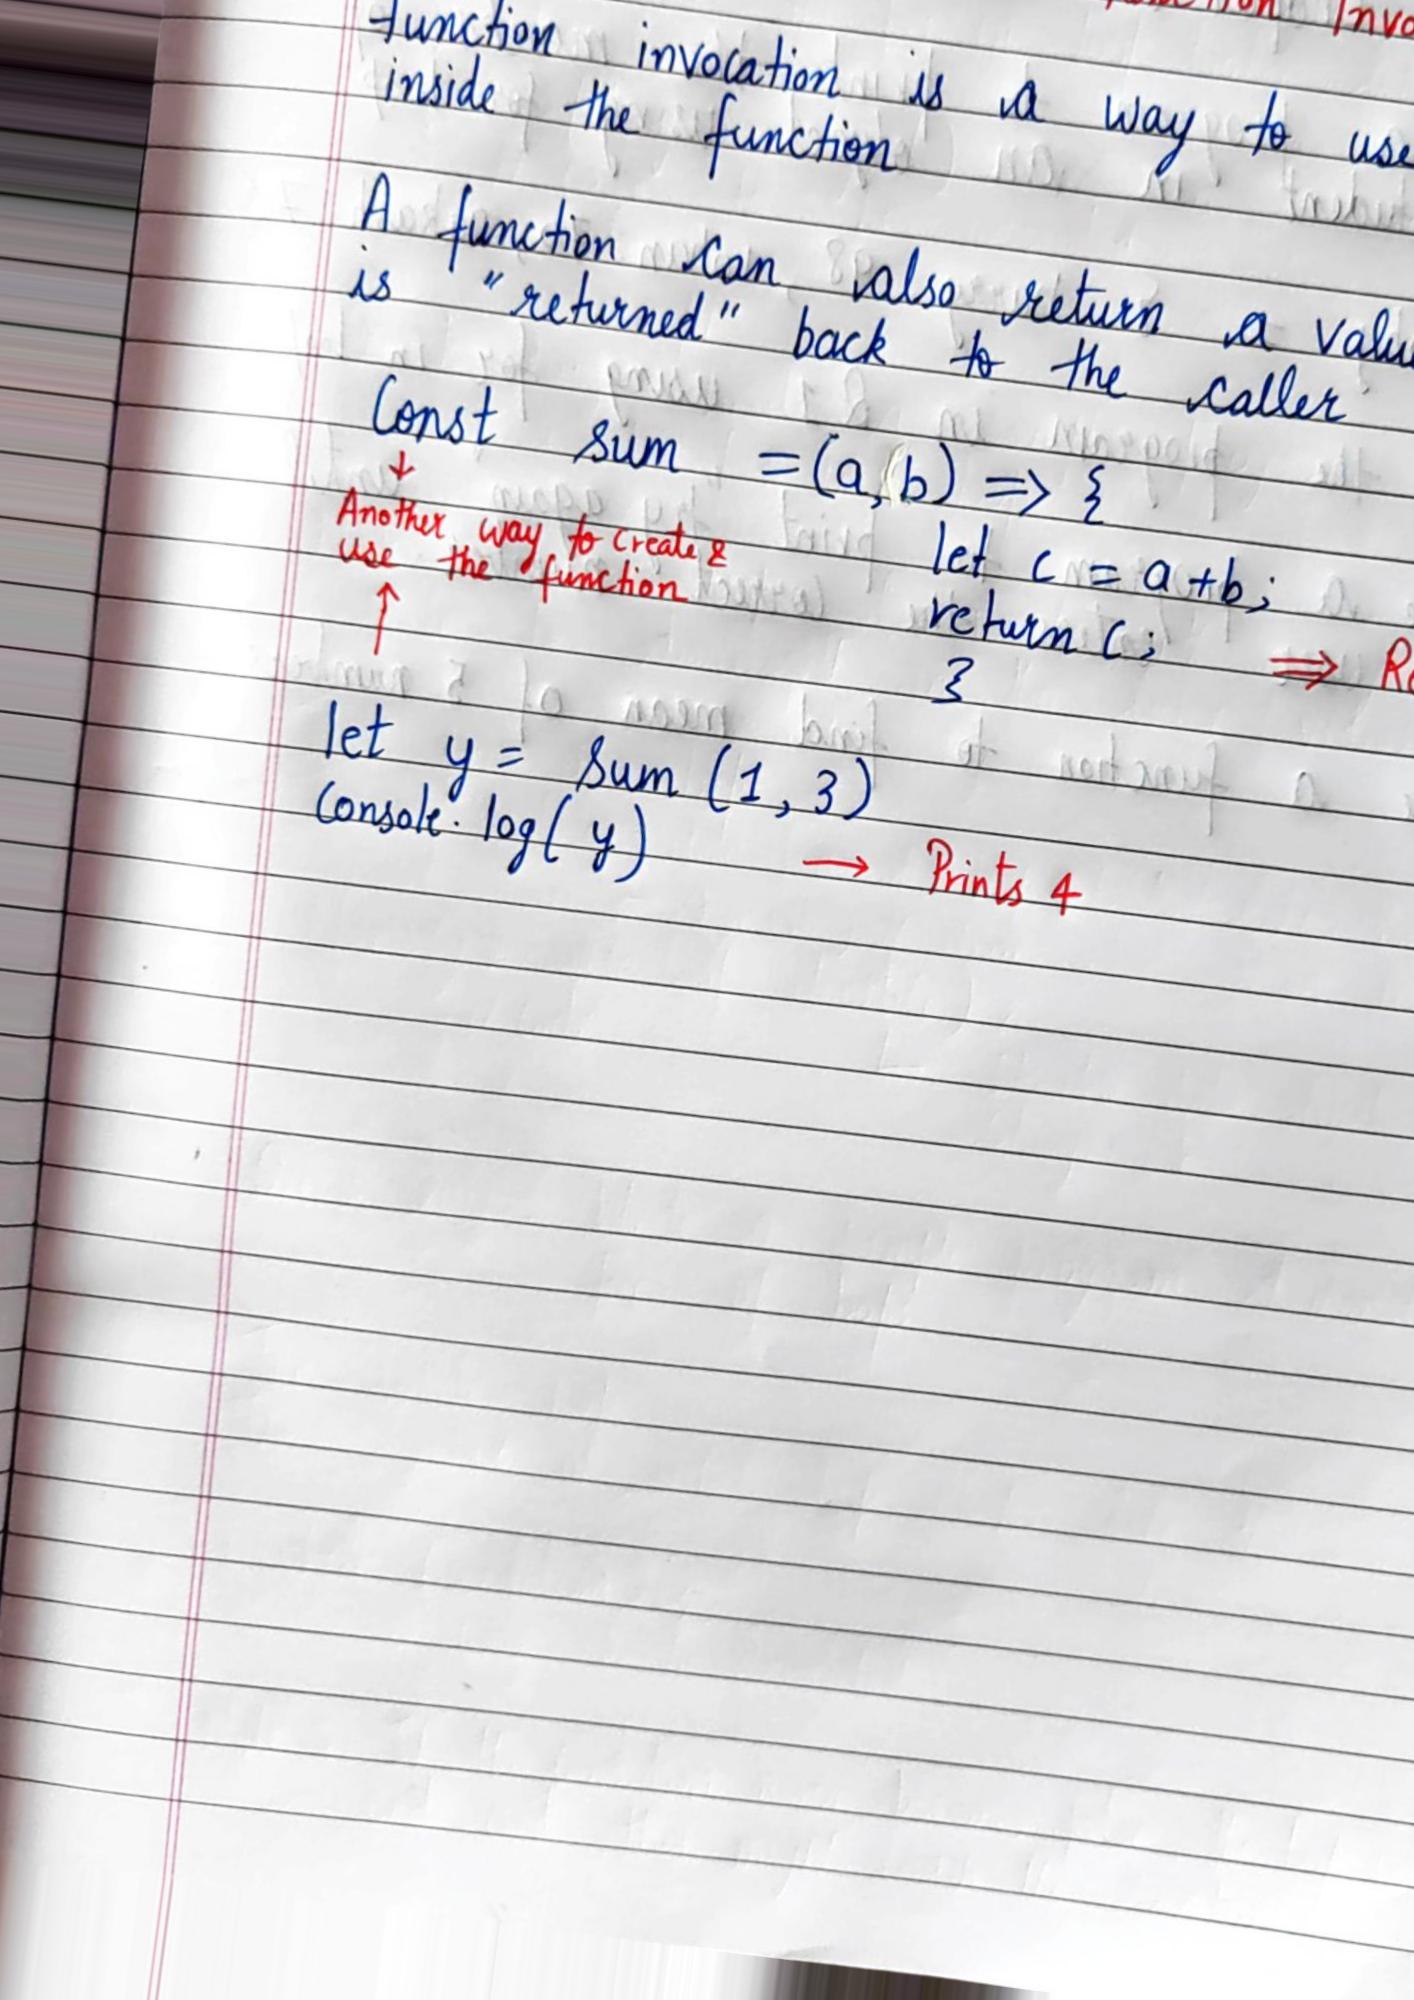 function invocation is a way to use
inside the function
A function can also return a
is "returned" back to the caller
Const sum = (a, b) => {
↓
Another way to create &
use the function
↑
let c = a + b;
return c; ⇒
}
let y = sum (1, 3)
Console. log( y) → Prints 4